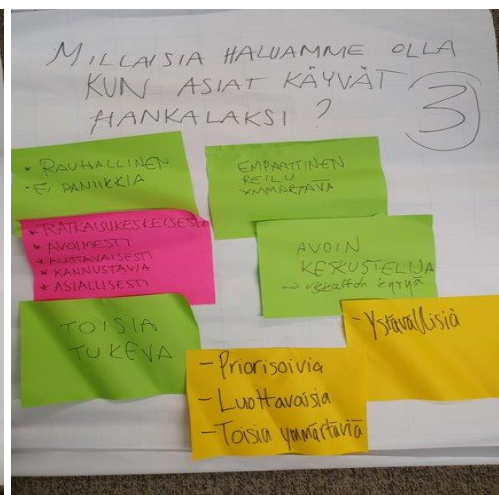 MILLAISIA HALUAMME OLLA
KUN ASIAT KÄYVÄT
HANKALAKSI ?
3
• RAUHALLINEN
• EI PANIIKKIA
EMPAATTINEN
REILU
YMMÄRTÄVÄ
* RATKAISUKESKEISESTI
* AVOIMESTI
* AUTTAVAISESTI
* KANNUSTAVIA
* ASIALLISESTI
AVOIN
KESKUSTELIJA
→ uskaltaa kysyä
TOISIA
TUKEVA
- Priorisoivia
- Luottavaisia
- Toisia ymmärtäviä
- Ystävällisiä